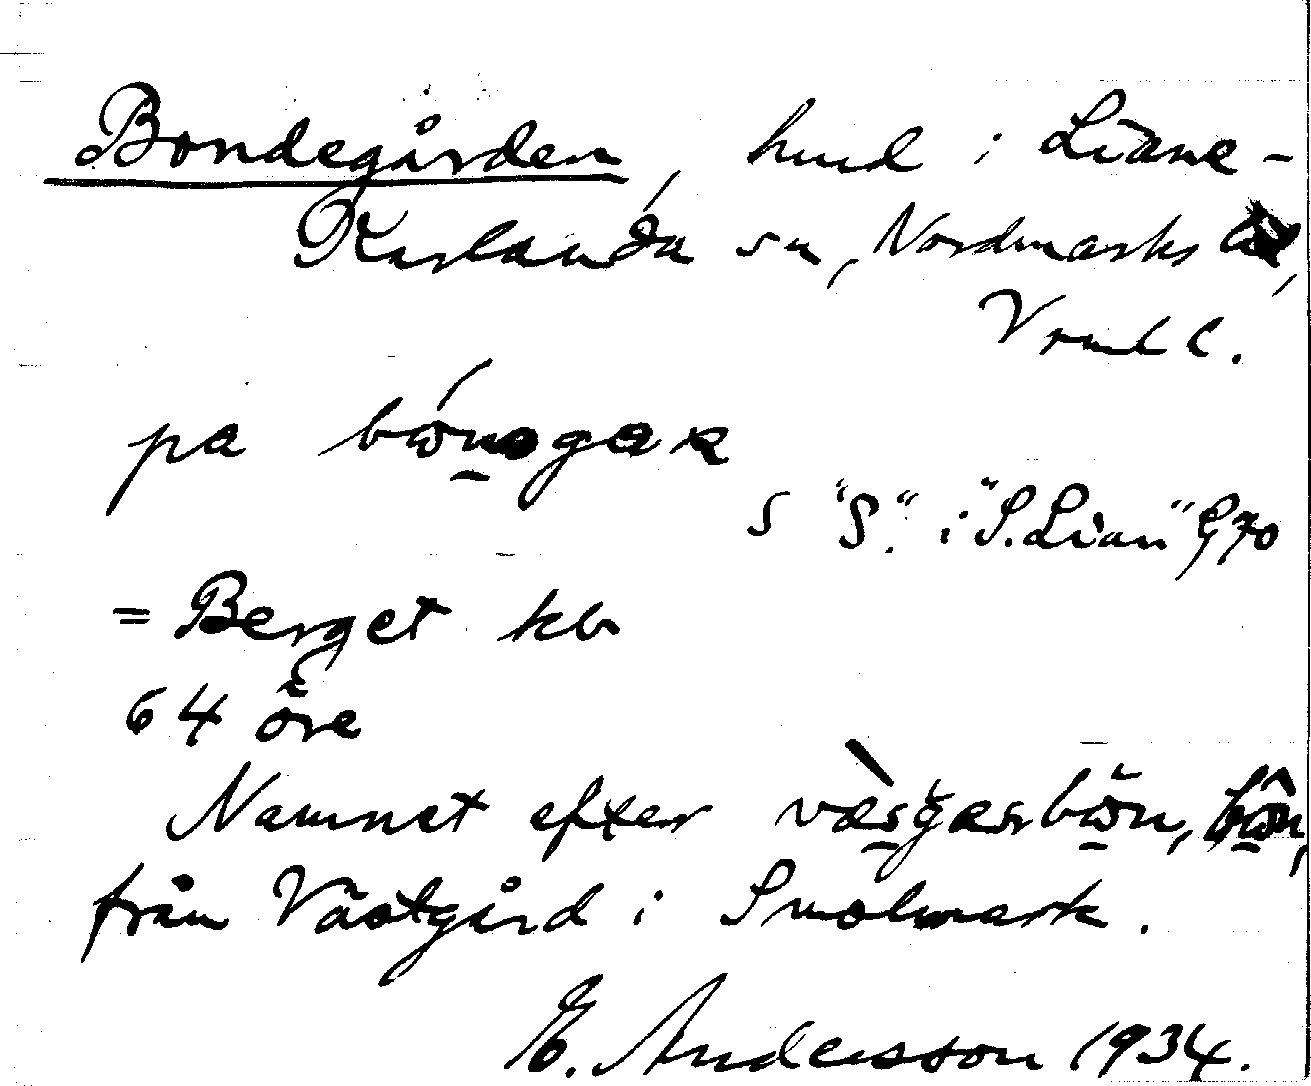 Bondegården, hmd i Liane-
Karlanda sn, Nordmarks hd,
Vrml l.
pa
S "S." i "S. Lian" 970
= Berget kb
64 öre
Namnet efter
från Västgård i Smolmark.
E. Andersson 1934.